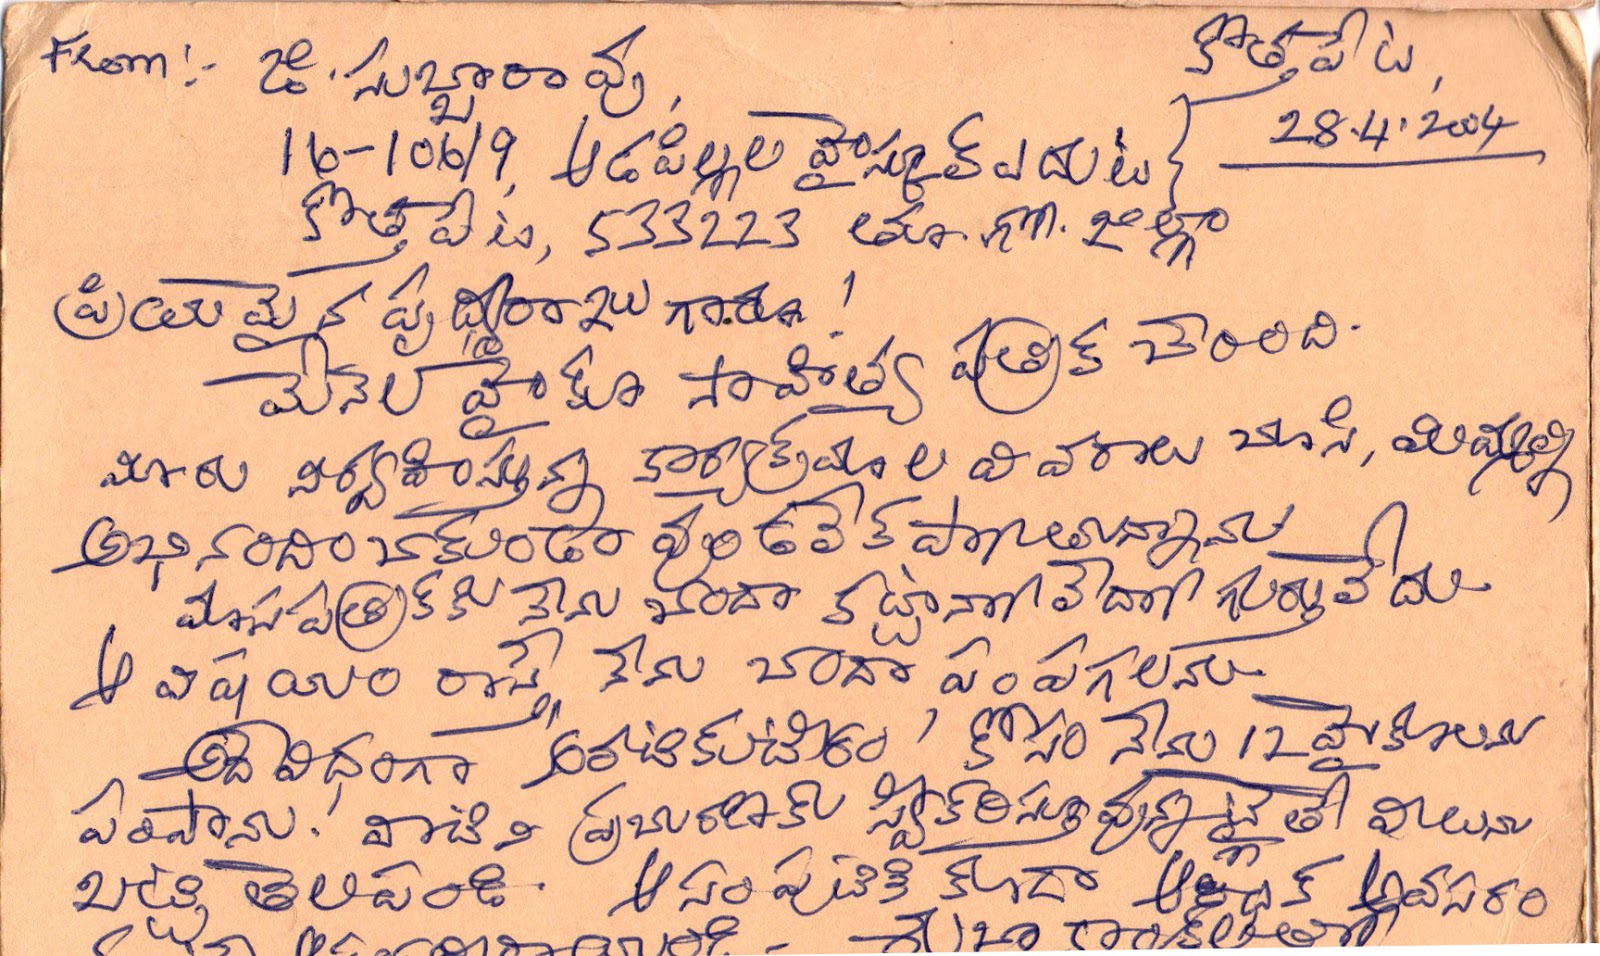 కొత్తపేట,
28.4.2004
From:- జి. సుబ్బారావు,
16-106/9, ఆడపిల్లల హైస్కూల్ ఎదుట
కొత్తపేట, 533223 తూ.గో. జిల్లా
ప్రియమైన పృథ్వీరాజు గారూ!
మేనెల హైకూ సాహిత్య పత్రిక చేరింది.
మీరు నిర్వహిస్తున్న కార్యక్రమాల వివరాలు చూసి, మిమ్మల్ని
అభినందించకుండా వుండలేక పోతున్నాను
మాసపత్రికకి నేను చందా కట్టానో లేదో గుర్తులేదు
ఆ విషయం రాస్తే నేను చందా పంపగలను
అదేవిధంగా కోసం నేను 12 హైకూలను
పంపాను. వాటిని ప్రచురణకు స్వీకరిస్తూవున్నట్లైతే వీలును
బట్టి తెలపండి. ఆ సంపుటికి కూడా ఆర్థిక అవసరం
శుభాకాంక్షలతో